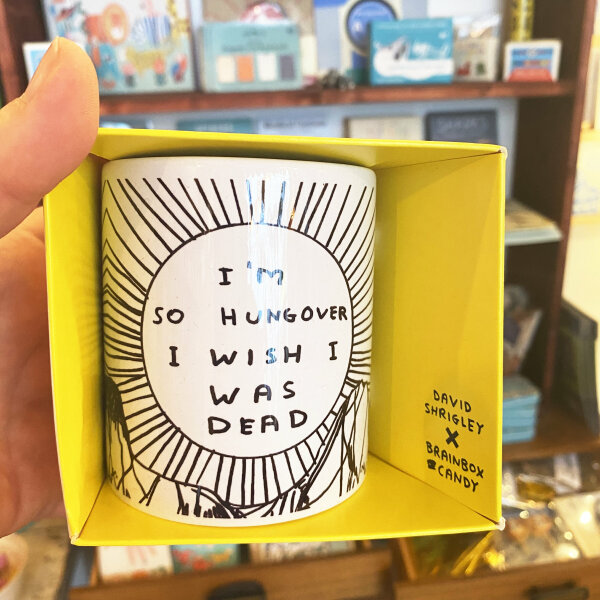 I'M
SO HUNGOVER
I WISH I
WAS
DEAD
DAVID
SHRIGLEY
X
BRAINBOX
CANDY